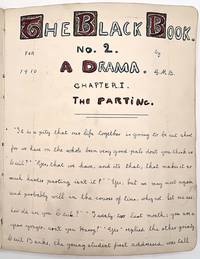 THE BLACK BOOK.
FOR 1910 No. 2. by G.M.B.
A DRAMA.
CHAPTER I.
THE PARTING.
"It is a pity that our life together is going to be cut short
for we have on the whole been very good pals don't you think so
Cecil?" "Yes, that we have, and it's that, that makes it so
much harder parting isn't it?" "Yes, but we may meet again
and probably will in the course of time. why let me see
how old are you Cecil?" "I nearly last month. you are a
year younger aren't you Henry?" "Yes" replied the other gravely
Cecil Banks, the young student first addressed was tall